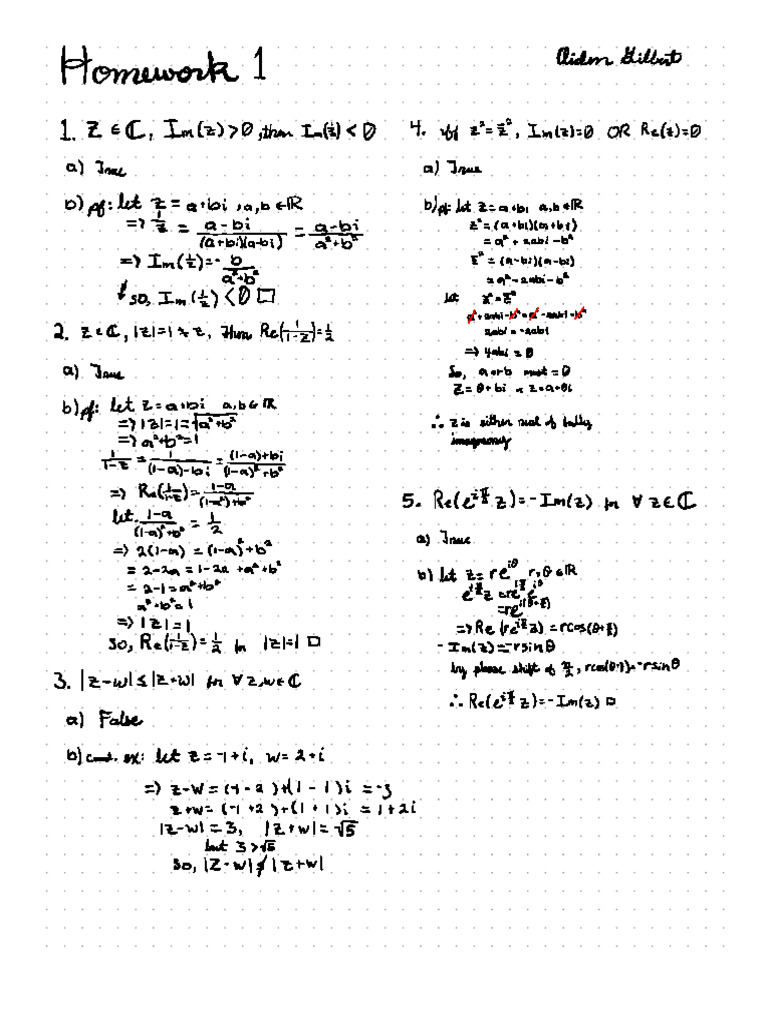 Homework 1
Aiden Gilbert
1. Z ∈ ℂ, Im(z)>0, then Im(1/z) < 0
a) True
b) pf: let z = a+bi, a,b ∈ ℝ
=> 1/z = (a-bi)/((a+bi)(a-bi)) = (a-bi)/(a²+b²)
=> Im(1/z) = - b/(a²+b²)
↓ so, Im(1/z) < 0 □
2. z∈ℂ, |z|=1 ≠ z, then Re(1/(1-z)) = 1/2
a) True
b) pf: let z = a+bi a,b ∈ ℝ
=> |z| = 1 = √(a²+b²)
=> a²+b² = 1
1/(1-z) = 1/((1-a)-bi) = ((1-a)+bi)/((1-a)²+b²)
=> Re(1/(1-z)) = (1-a)/((1-a)²+b²)
let (1-a)/((1-a)²+b²) = 1/2
=> 2(1-a) = (1-a)²+b²
= 2-2a = 1-2a+a²+b²
= 2-1 = a²+b²
a²+b² = 1
=> |z| = 1
so, Re(1/(1-z)) = 1/2 for |z|=1 □
3. |z-w| ≤ |z+w| for ∀ z,w ∈ ℂ
a) False
b) cont. ex: let z = -1+i, w = 2+i
=> z-w = (-1-2)+(1-1)i = -3
z+w = (-1+2)+(1+1)i = 1+2i
|z-w| = 3, |z+w| = √5
but 3 > √5
so, |z-w| ≰ |z+w|
4. iff z² = z̄², Im(z)=0 OR Re(z)=0
a) True
b) pf: let z = a+bi a,b ∈ ℝ
z² = (a+bi)(a+bi)
= a²+2abi-b²
z̄² = (a-bi)(a-bi)
= a²-2abi-b²
let z² = z̄²
a²+2abi-b² = a²-2abi-b²
2abi = -2abi
=> 4abi = 0
So, a or b must = 0
z = 0+bi or z = a+0i
∴ z is either real or fully
imaginary
5. Re(e^(iπ/2) z) = -Im(z) for ∀ z∈ℂ
a) True
b) let z = re^(iθ) r,θ ∈ ℝ
e^(iπ/2) z = re^(iπ/2) e^(iθ)
= re^(i(θ+π/2))
=> Re(re^(iπ/2) z) = rcos(θ+π/2)
-Im(z) = -rsinθ
by phase shift of π/2, rcos(θ+π/2) = -rsinθ
∴ Re(e^(iπ/2) z) = -Im(z) □